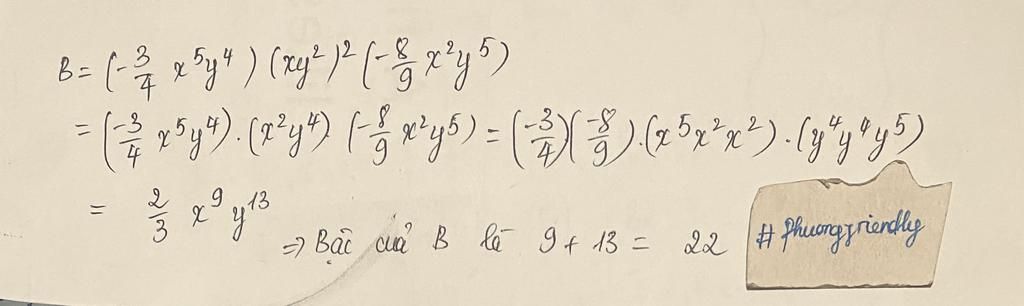 B = (-3/4 x⁵y⁴) (xy²)² (-8/9 x²y⁵)
= (-3/4 x⁵y⁴) . (x²y⁴) (-8/9 x²y⁵) = (-3/4)(-8/9) . (x⁵x²x²) . (y⁴y⁴y⁵)
= 2/3 x⁹y¹³
⇒ Bậc của B là 9 + 13 = 22
# phuongfriendly